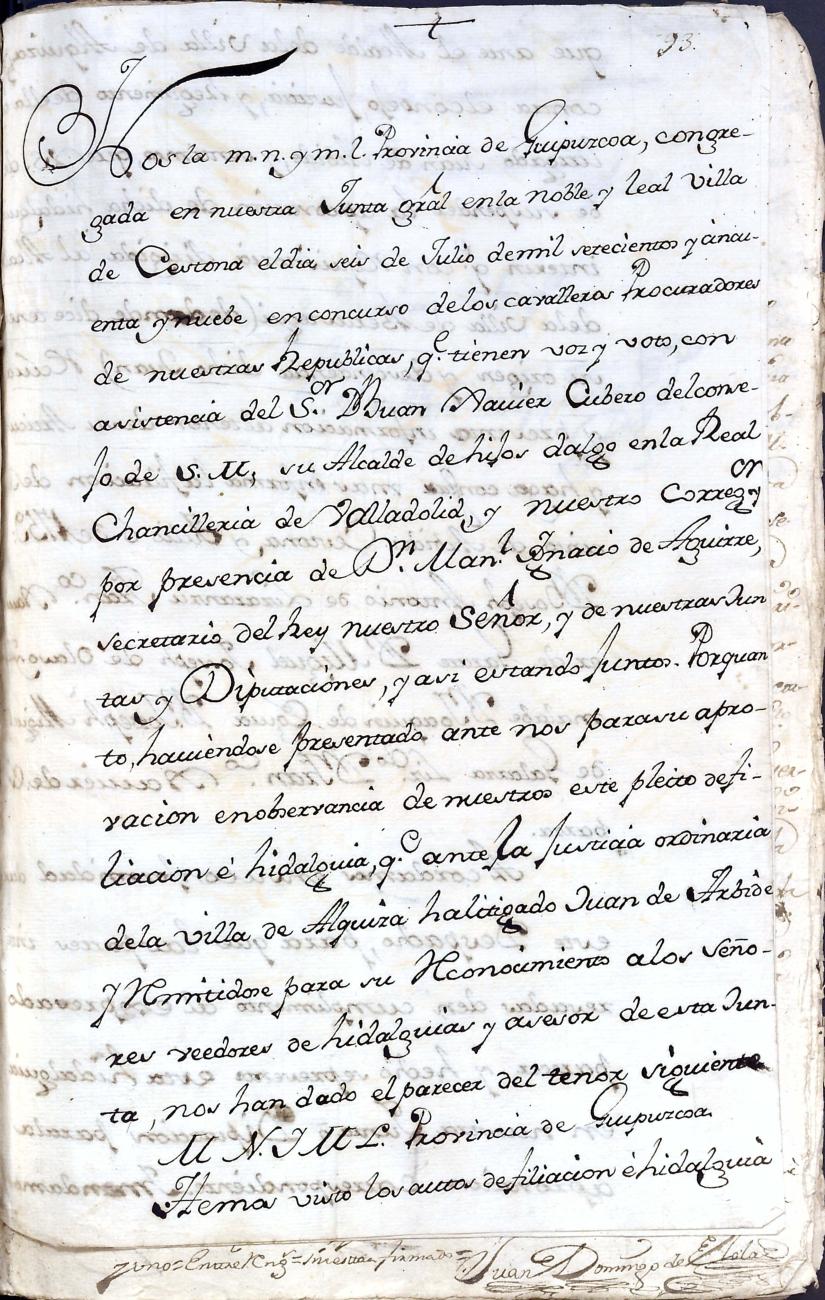 93.
Nos la m. n. y m. l. Provincia de Guipuzcoa, congre-
gada en nuestra Junta gral en la noble y leal villa
de Cestona el dia seis de Julio de mil setecientos y cinqu-
enta y nuebe en concurso de los cavalleros Procuradores
de nuestras Republicas, q.e tienen voz y voto, con
asistencia del S.or D Juan Xavier Cubero del conse-
jo de S. M., su Alcalde de hijos dalgo en la Real
Chancilleria de Valladolid, y nuestro Correg.or
por presencia de D.n Man.l Ignacio de Aguirre,
secretario del Rey nuestro Señor, y de nuestras Jun
tas y Diputaciones, y asi estando juntos. Porquan
to, haviendose presentado ante nos para su apro-
vacion en observancia de nuestros este pleito de fi-
liacion é hidalguia, q.e ante la Justicia ordinaria
de la villa de Alquiza ha litigado Juan de Arbide
y Rmitidose para su Rconocimiento a los seño-
res veedores de hidalguias y asesor de esta Jun-
ta, nos han dado el parecer del tenor siguiente
M N. Y M L. Provincia de Guipuzcoa.
Hemos visto los autos de filiacion é hidalguia
y uno = Entre Rng.s = firmado = Juan Domingo de